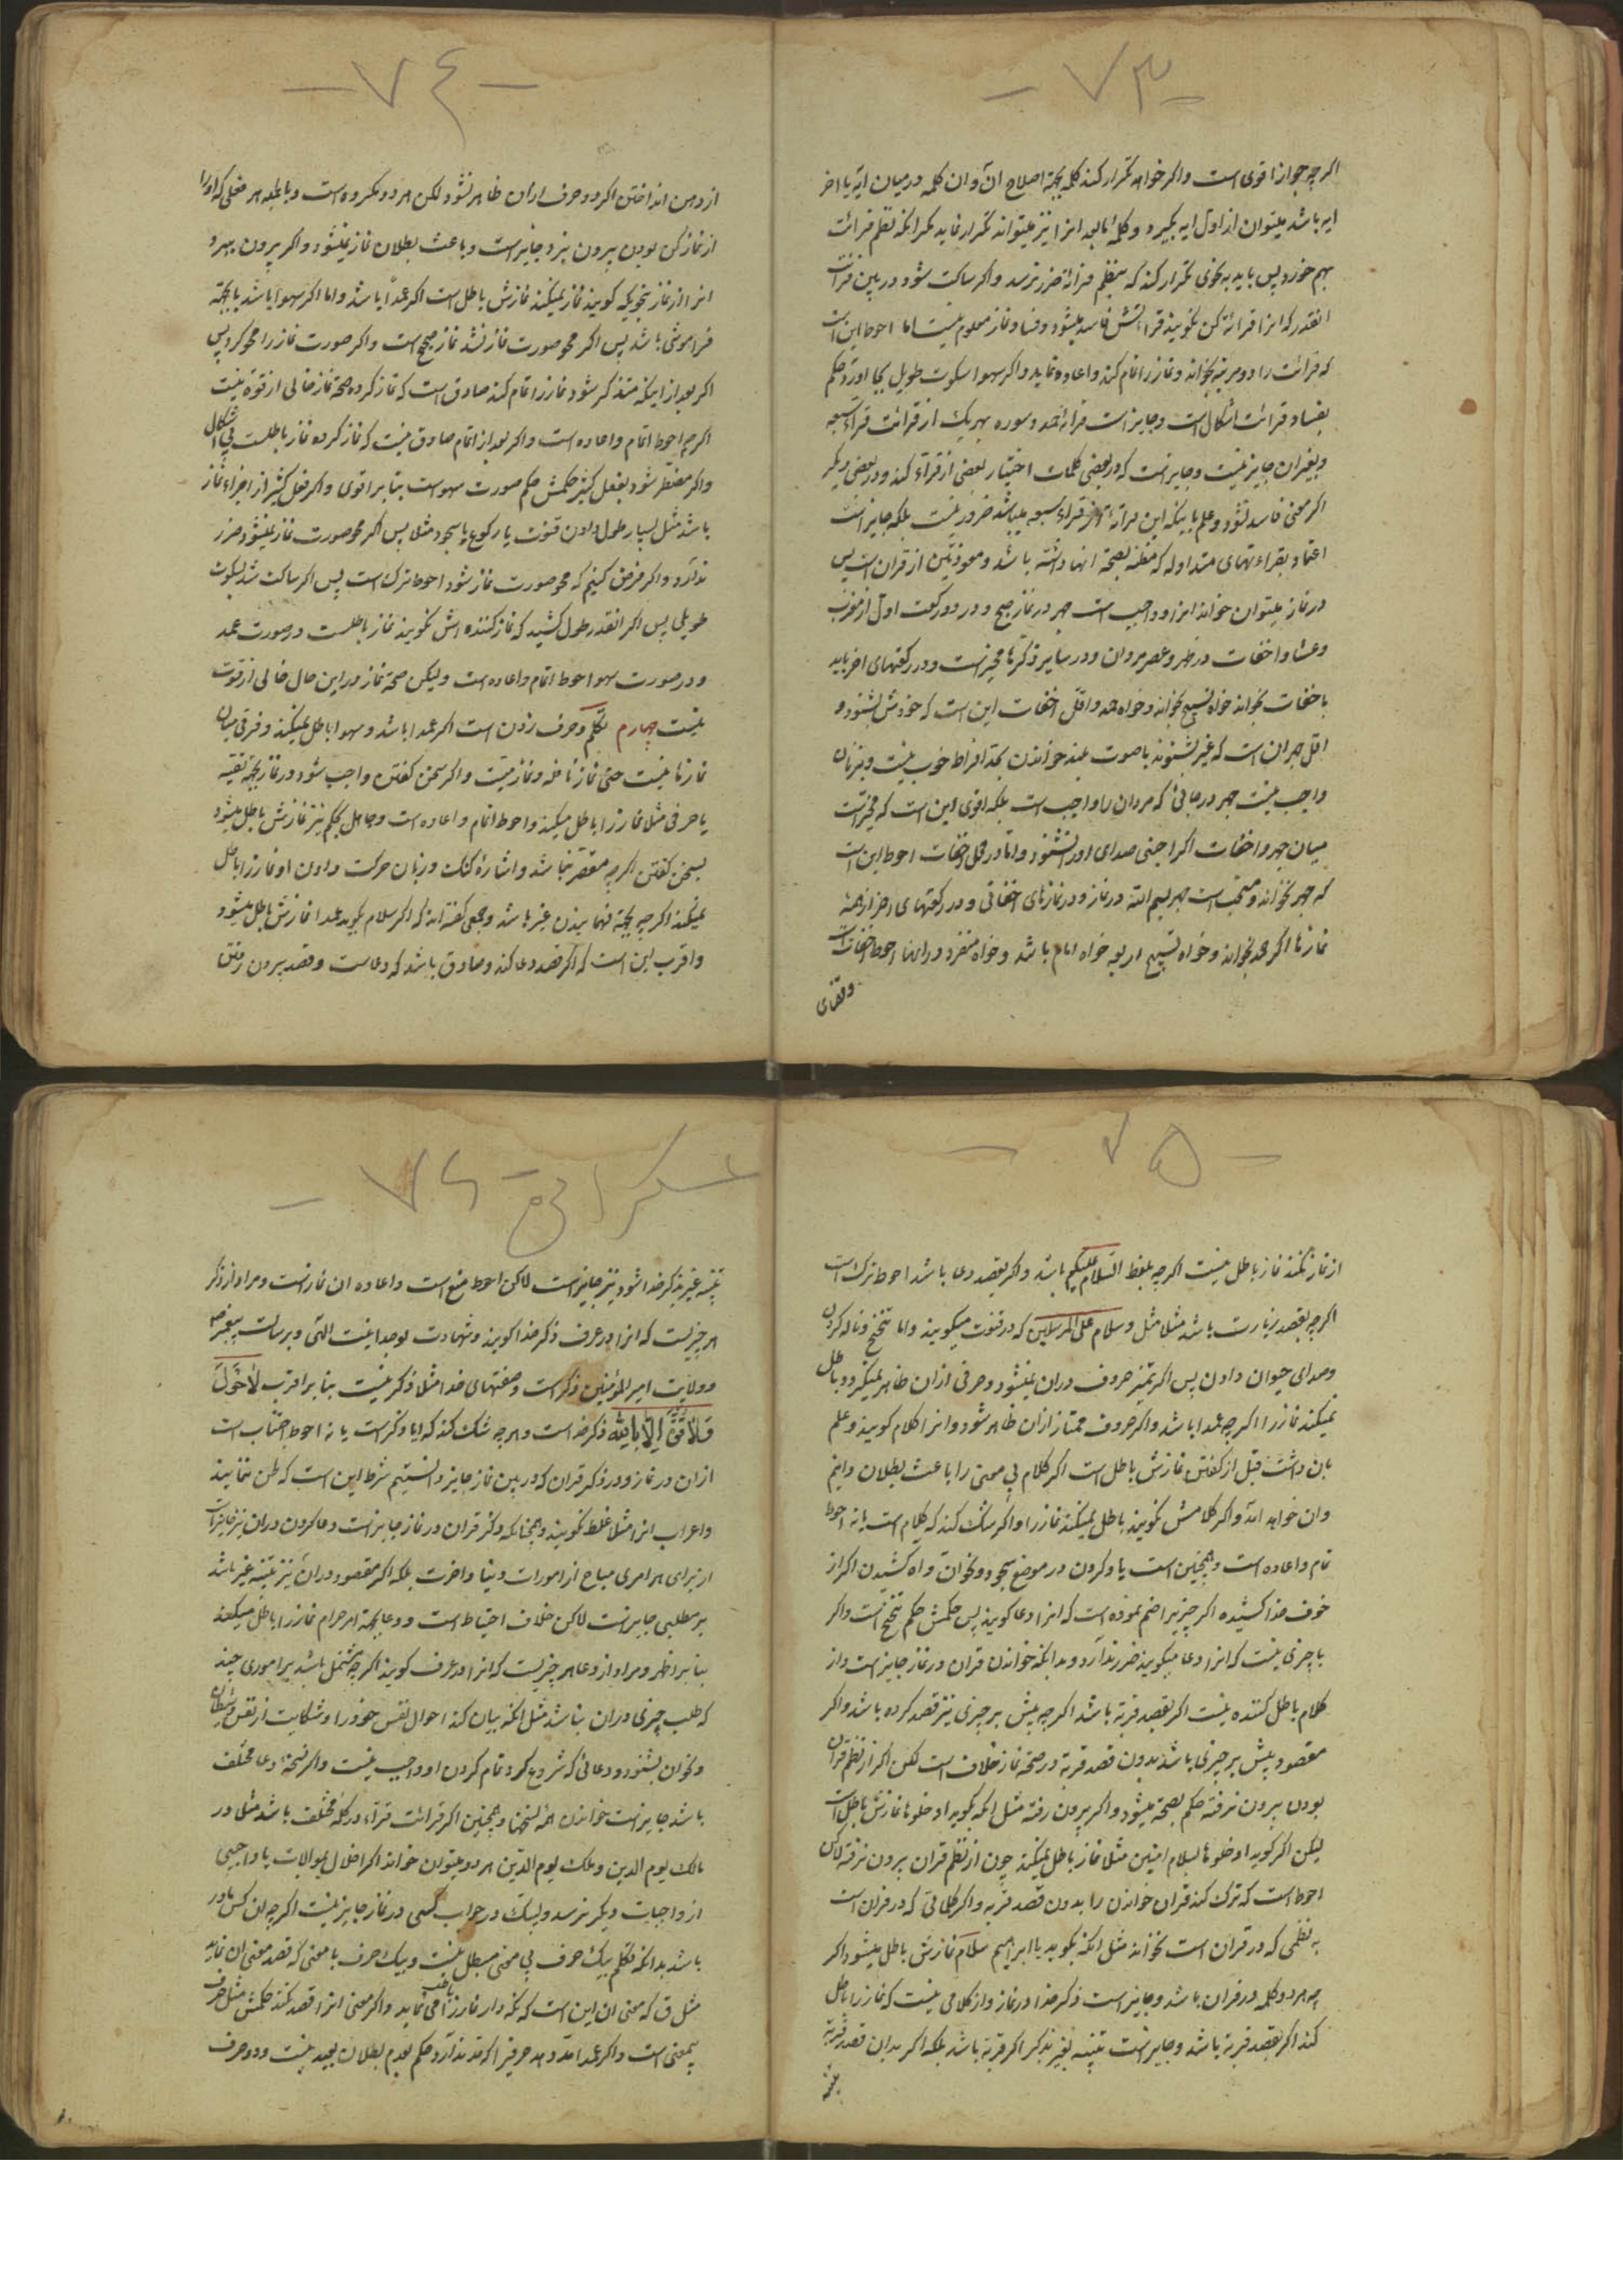 - ۷۳ -
اکرچه جواز اقوی است واکر خواهد تکرار کند کلمه بجهة اصلاح آن وان کلمه در میان ایه یا اخر
ایه باشد میتوان از اول ایه بکیرد و کلمهٔ تا بعد انرا نیز میتواند تکرار نماید مکر انکه نظم قرائت
بهم خورد پس باید به نحوی تکرار کند که بنظم قرائة ضرر نرسد واکر ساکت شود در بین قرائت
انقدر که انرا قرائة کن نکویند قراءتش فاسد میشود وفساد نماز معلوم نیست اما احوط این است
که قرائت را دو مرتبه بخواند ونماز را تمام کند واعاده نماید واکر سهوا سکوت طویل بجا اورد حکم
بفساد قرائت اشکال است وجایز است قرائة حمد وسوره بهر یک از قرائت قراء سبعه
وبغیر ان جایز نیست وجایز است که در بعضی کلمات اختیار بعضی از قراء کند ودر بعضی دیکر
اکر معنی فاسد نشود وعلم باینکه این قرائة از قراء سبعه میباشد ضرور نیست بلکه جایز است
اعتماد بقراءتهای متداوله که مظنه بصحة انها داشته باشد ومعوذتین از قران است پس
در نماز میتوان خواند انرا وواجب است جهر در نماز صبح ودر دو رکعت اول از مغرب
وعشا واخفات در ظهر وعصر بر مردان ودر سایر ذکرها مخیر است ودر رکعتهای اخر باید
باخفات بخواند خواه تسبیح بخواند وخواه حمد واقل اخفات این است که خودش بشنود و
اقل جهر ان است که غیر بشنوند با صوت بلند خواندن بحد افراط خوب نیست وبر زنان
واجب نیست جهر در جائی که مردان را واجب است بلکه اقوی این است که مخیر است
میان جهر واخفات اکر اجنبی صدای او را نشنود واما در محل اخفات احوط این است
که جهر نخواند ومستحب است جهر بسم الله در نماز ودر نمازهای اخفاتی ودر رکعتهای اخر از همه
نمازها اکر حمد بخواند وخواه تسبیح اربعه خواه امام باشد وخواه منفرد ودر اینها احوط اخفات است
- ۷٤ -
از دهن انداختن اکر دو حرف از ان ظاهر نشود لکن هر دو مکروه است وبالجمله هر فعلی که او را
از نماز کن بودن بیرون نبرد جایز است وباعث بطلان نماز نمیشود واکر بیرون ببرد
انرا از نماز بنحویکه کویند نماز نمیکند نمازش باطل است اکر عمدا باشد واما اکر سهوا باشد یا بجهة
فراموشی باشد پس اکر محو صورت نماز نشد نماز صحیح است واکر صورت نماز را محو کرد پس
اکر بعد از اینکه متذکر شود نماز را تمام کند صادق است که نماز کرده صحة نماز خالی از قوة نیست
اکرچه احوط اتمام واعاده است واکر بعد از اتمام صادق نیست که نماز کرده نماز باطلست بی اشکال
واکر مضطر شود بفعل کثیر حکمش حکم صورت سهو است بنا بر اقوی واکر فعل کثیر از اجزاء نماز
باشد مثل بسیار طول دادن قنوت یا رکوع یا سجود مثلا پس اکر محو صورت نماز نمیشود ضرر
ندارد واکر فرض کنیم که محو صورت نماز شود احوط ترک است پس اکر ساکت شد بسکوت
طویلی پس اکر انقدر طول کشید که نماز کننده اش نکویند نماز باطلست در صورت عمد
ودر صورت سهو احوط اتمام واعاده است ولیکن صحة نماز در این حال خالی از قوت
نیست چهارم تکلم وحرف زدن است اکر عمدا باشد وسهو اباطل نمیکند وفرقی میان
نمازها نیست حتی نماز نافله ونماز میت واکر سخن کفتن واجب شود در نماز بجهة تقیه
یا حرفی مثلا نماز را باطل میکند واحوط اتمام واعاده است وجاهل بحکم نیز نمازش باطل میشود
بسخن کفتن اکرچه مقصر نباشد واشارهٔ کنک وزبان حرکت دادن او نماز را باطل
نمیکند اکرچه بجهة فهمانیدن غیر باشد وبعضی کفته اند که اکر سلام بکوید عمدا نمازش باطل میشود
واقرب این است که اکر قصد دعا کند وصادق باشد که دعاست وقصد بیرون رفتن
- ۷۵ -
از نماز نکند نماز باطل نیست اکرچه بلفظ السلام علیکم باشد واکر بقصد دعا باشد احوط ترک است
اکرچه بقصد زیارت باشد مثلا مثل وسلام علی المرسلین که در قنوت میکویند واما تنحنح وناله کردن
وصدای حیوان دادن پس اکر تمیز حروف در ان نمیشود وحرفی از ان ظاهر نمیکردد باطل
نمیکند نماز را اکرچه عمدا باشد واکر حروف ممتاز از ان ظاهر شود وانرا کلام کویند وعلم
بان داشت قبل از کفتن نمازش باطل است اکر کلام بی معنی را باعث بطلان دانیم
وان خواهد امد واکر کلامش نکویند باطل نمیکند نماز را واکر شک کند که کلام است یا نه احوط
تمام واعاده است وهمچنین است یاد کردن در موضع سجود وبخوان واه کشیدن اکر از
خوف خدا کشیده اکر چیزیرا ضم نموده است که انرا دعا کویند پس حکمش حکم تنحنح است واکر
با چیزی نیست که انرا دعا میکویند ضرر ندارد وبدانکه خواندن قران در نماز جایز است واز
کلام باطل کننده نیست اکر بقصد قربة باشد اکرچه پیش بر چیزی نیز قصد کرده باشد واکر
مقصود پیش بر چیزی باشد بدون قصد قربة در صحة نماز خلاف است لکن اکر از نظم قران
بودن بیرون نرفته حکم بصحة میشود واکر بیرون رفته مثل انکه بکوید ادخلوها نمازش باطل است
لیکن اکر کوید ادخلوها بسلام امنین مثلا نماز باطل نمیکند چون از نظم قران بیرون نرفته لاکن
احوط است که ترک کند قران خواندن را بدون قصد قربه واکر کلماتی که در قران است
به نظمی که در قران است نخواند مثل انکه بکوید یا ابراهیم سلام نمازش باطل میشود اکر
چه هر دو کلمه در قران باشد وجایز است ذکر خدا در نماز واز کلامی نیست که نماز را باطل
کند اکر بقصد قربة باشد وجایز است تنبیه بغیر بذکر اکر قربة باشد بلکه اکر بدان قصد قربة
- ۷۶ -
تنبیه غیر بذکر خدا شود نیز جایز است لاکن احوط منع است واعاده ان نماز است ومراد از ذکر
هر چیزیست که انرا در عرف ذکر خدا کویند وشهادت بوحدانیت الهی وبرسالت پیغمبر
وولایت امیر المؤمنین ذکر است وصفتهای خدا مثلا ذکر نیست بنا بر اقرب لا حول
ولا قوة الا بالله ذکر خدا است وهرچه شک کند که ایا ذکر است یا نه احوط اجتناب است
از ان در نماز ودر ذکر قران که در بین نماز جایز دانستیم شرط این است که لحن ننمایید
واعراب انرا مثلا غلط نکویند وهمچنانکه ذکر قران در نماز جایز است دعا کردن در ان نیز جایز است
از برای هر امری مباح از امورات دنیا واخرت بلکه اکر مقصود در ان نیز تنبیه غیر باشد
بر مطلبی جایز است لاکن خلاف احتیاط است ودعا بجهة امر حرام نماز را باطل میکند
بنا بر اظهر ومراد از دعا هر چیزیست که انرا در عرف کویند اکرچه مشتمل باشد بر اموری چند
که طلب چیزی در ان نباشد مثل انکه بیان کند احوال نفس خود را وشکایت از نفس وشیطان
وبخوان بشنود ودعائی که شروع کرد تمام کردن او واجب نیست واکر نسخهٔ دعا مختلف
باشد جایز است خواندن همه نسخها وهمچنین اکر قرائت قراء در کلمه مختلف باشد مثلا در
مالک یوم الدین وملک یوم الدین هر دو میتوان خواند اکر اخلال بموالات یا واجبی
از واجبات دیکر نرسد ولبیک در جواب کسی در نماز جایز نیست اکرچه ان کس مادر
باشد بدانکه تکلم بیک حرف بی معنی مبطل نیست وبیک حرف با معنی که قصد معنی ان نماید
مثل ق که معنی ان این است که نکه دار نماز را باطل می نماید واکر معنی انرا قصد نکند حکمش مثل حرف
بیمعنی است واکر عمدا مد دهد حرفیرا که مد ندارد حکم بعدم بطلان بعید نیست ودو حرف